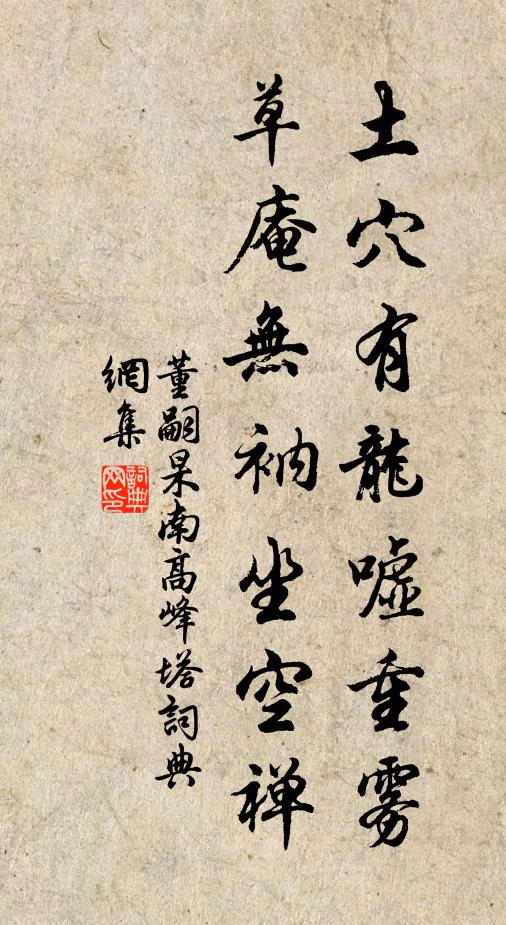 土穴有龍噓重霧
草庵無衲坐空禅
董嗣杲南高峰塔詞典
網集
詞典
网印